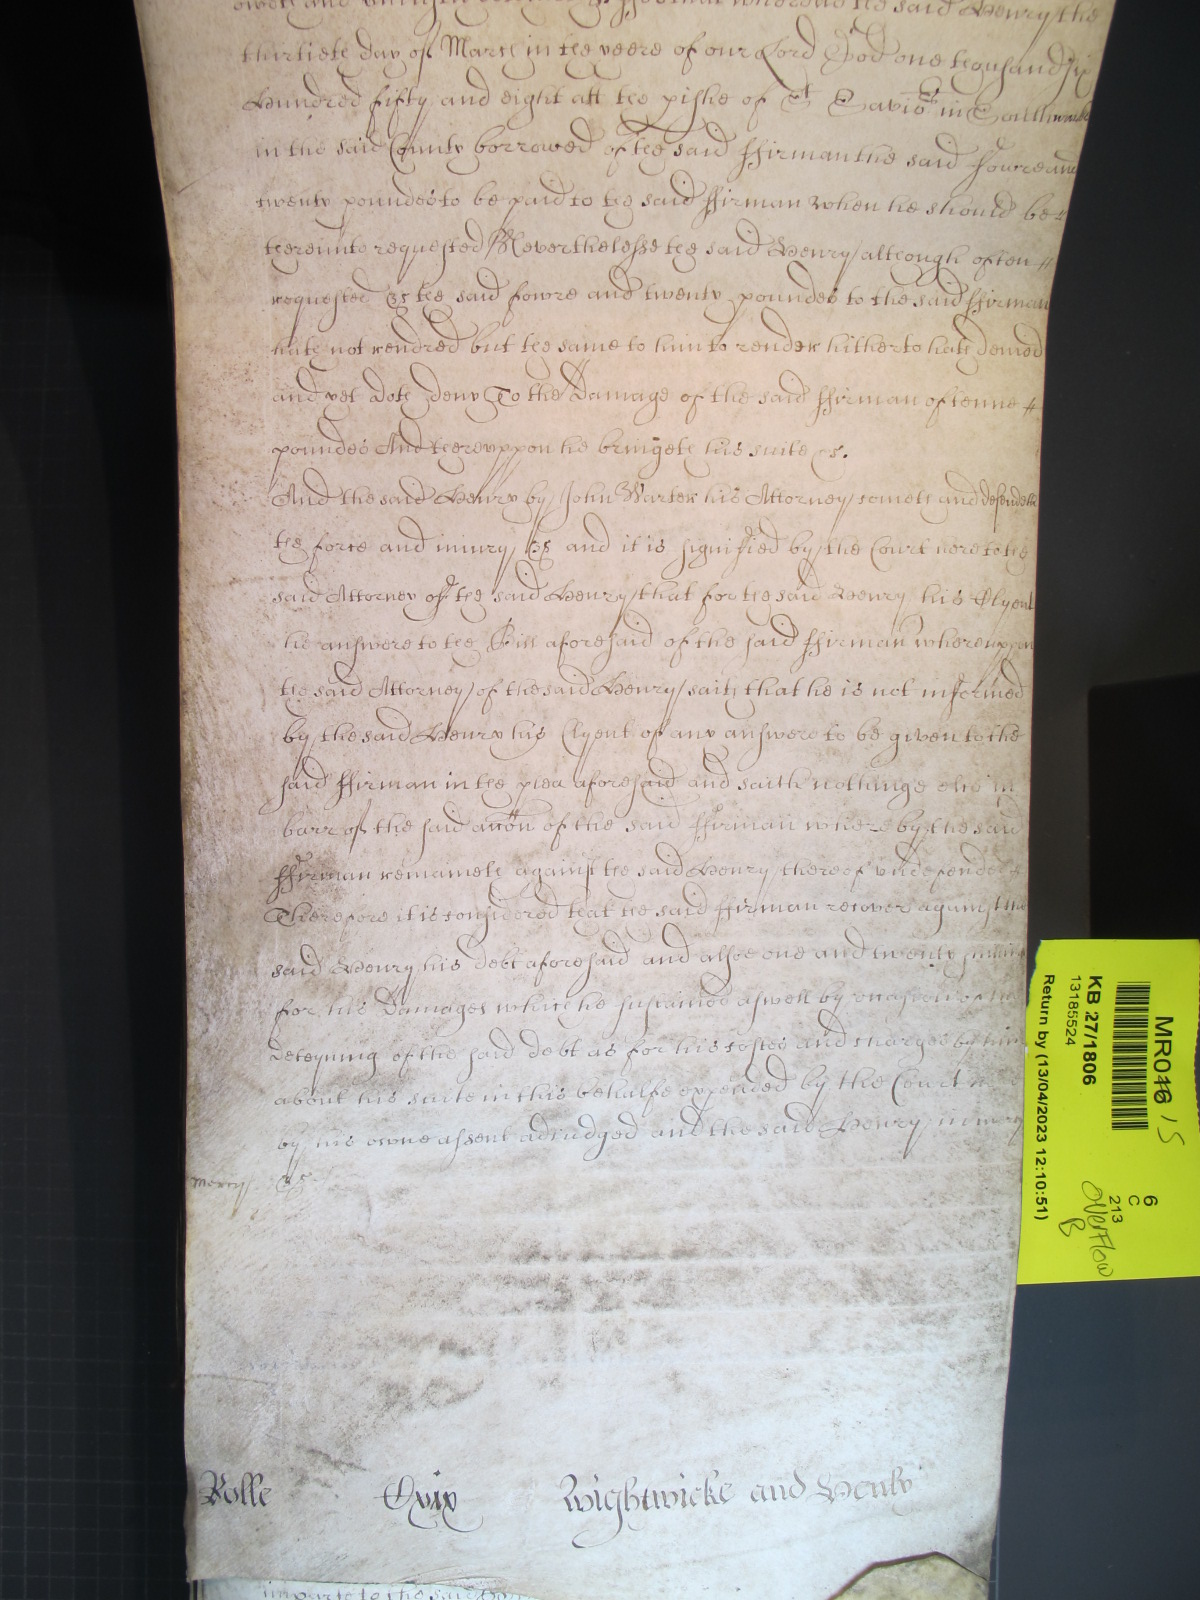 oweth and unjustly deteineth &c For that whereas the said Henry the
thirtieth day of March in the yeere of our Lord God one thousand six
Hundred fifty and eight att the pishe of St Savio:rs in Southwarke
in the said County borrowed of the said Ffirman the said fowre and
twenty poundes to be paid to the said Ffirman when he should be
thereunto requested Neverthelesse the said Henry although often
requested &c the said fowre and twenty poundes to the said Ffirman
hath not rendred but the same to him to render hitherto hath denied
and yet doth deny To the Damage of the said Ffirman of tenne
poundes And thereuppon he bringeth his suite &c.
And the said Henry by John Warter his Attorney cometh and defendeth
the force and iniury &c and it is signified by the Court here to the
said Attorney of the said Henry that for the said Henry his Clyent
he answere to the Bill aforesaid of the said Ffirman whereuppon
the said Attorney of the said Henry saith that he is not informed
by the said Henry his Clyent of any answere to be given to the
said Ffirman in the plea aforesaid and saith nothinge else in
barr of the said accon of the said Ffirman whereby the said
Ffirman remaineth against the said Henry thereof undefended
Therefore it is considered that the said Ffirman recover against the
said Henry his debt aforesaid and alsoe one and twenty
for his Damages which he sustained aswell by occasion of the
deteyning of the said debt as for his costes and charges by him
about his suite in this behalfe expended by the Court
by his owne assent adiudged and the said Henry in mercy
mercy &c
Rolle Cxix Wightwicke and Henly
imparle to the said
MR016 15
KB 27/1806
13185524
Return by (13/04/2023 12:10:51)
6
C
213
Overflow
B